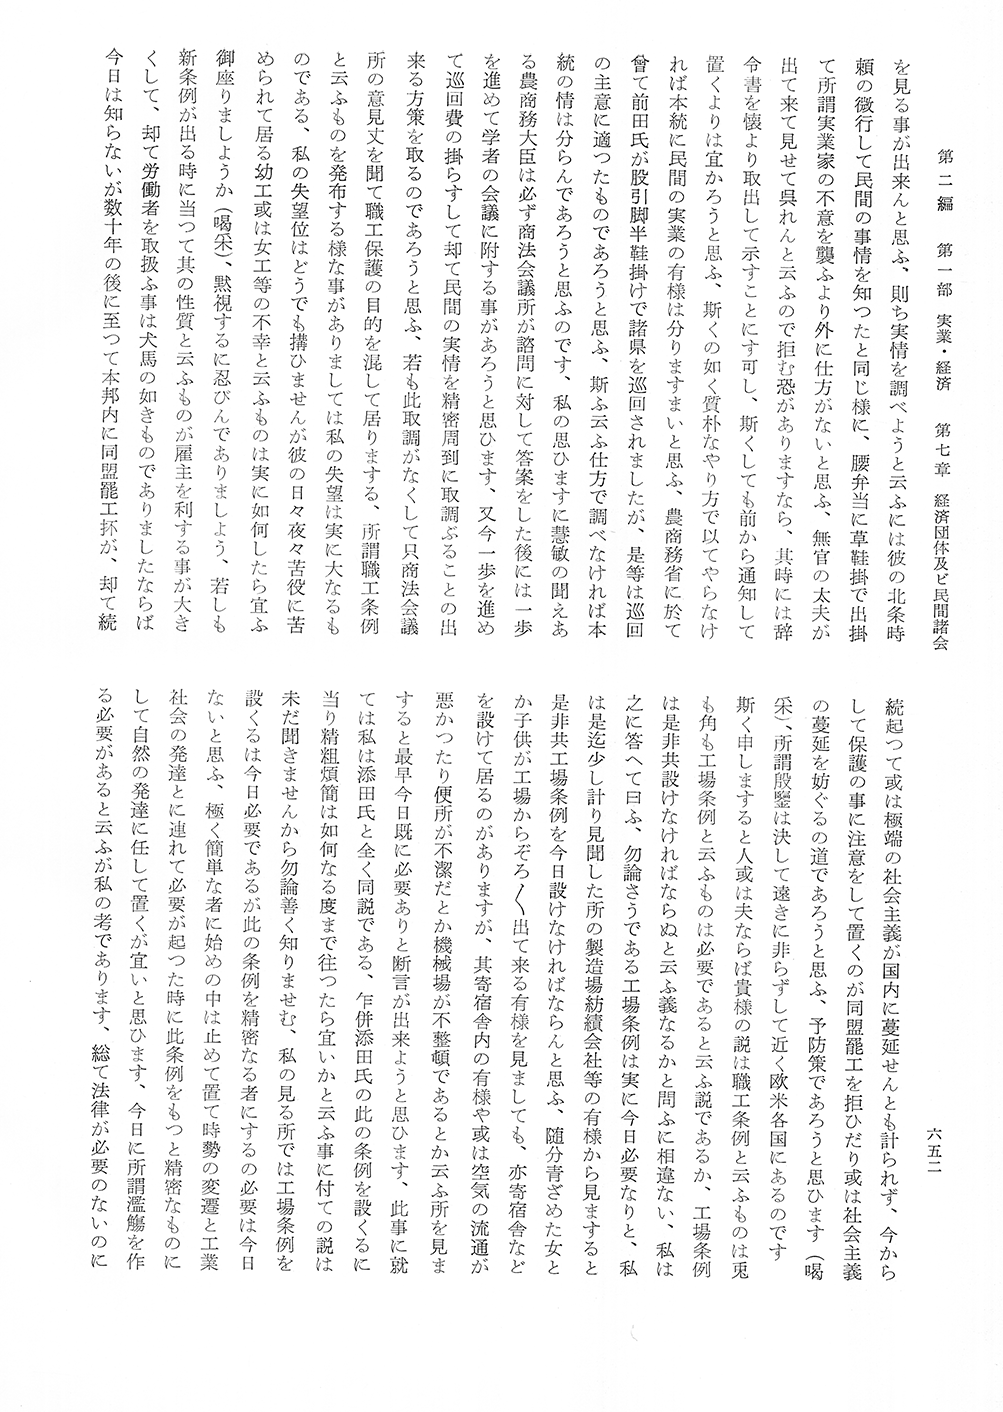 第二編 第一部 実業・経済 第七章 経済団体及ビ民間諸会
六五二
を見る事が出来んと思ふ、則ち実情を調べようと云ふには彼の北条時
頼の微行して民間の事情を知つたと同じ様に、腰弁当に草鞋掛で出掛
て所謂実業家の不意を襲ふより外に仕方がないと思ふ、無官の太夫が
出て来て見せて呉れんと云ふので拒む恐がありますなら、其時には辞
令書を懐より取出して示すことにす可し、斯くしても前から通知して
置くよりは宜かろうと思ふ、斯くの如く質朴なやり方で以てやらなけ
れば本統に民間の実業の有様は分りますまいと思ふ、農商務省に於て
曾て前田氏が股引脚半鞋掛けで諸県を巡回されましたが、是等は巡回
の主意に適つたものであろうと思ふ、斯ふ云ふ仕方で調べなければ本
統の情は分らんであろうと思ふのです、私の思ひますに慧敏の聞えあ
る農商務大臣は必ず商法会議所が諮問に対して答案をした後には一歩
を進めて学者の会議に附する事があろうと思ひます、又今一歩を進め
て巡回費の掛らすして却て民間の実情を精密周到に取調ぶることの出
来る方策を取るのであろうと思ふ、若も此取調がなくして只商法会議
所の意見丈を聞て職工保護の目的を混して居りまする、所謂職工条例
と云ふものを発布する様な事がありましては私の失望は実に大なるも
のである、私の失望位はどうでも搆ひませんが彼の日々夜々苦役に苦
められて居る幼工或は女工等の不幸と云ふものは実に如何したら宜ふ
御座りましようか（喝采）、黙視するに忍びんでありましよう、若しも
新条例が出る時に当つて其の性質と云ふものが雇主を利する事が大き
くして、却て労働者を取扱ふ事は犬馬の如きものでありましたならば
今日は知らないが数十年の後に至つて本邦内に同盟罷工抔が、却て続
続起つて或は極端の社会主義が国内に蔓延せんとも計られず、今から
して保護の事に注意をして置くのが同盟罷工を拒ひだり或は社会主義
の蔓延を妨ぐるの道であろうと思ふ、予防策であろうと思ひます（喝
采）、所謂殷鑒は決して遠きに非らずして近く欧米各国にあるのです
斯く申しますると人或は夫ならば貴様の説は職工条例と云ふものは兎
も角も工場条例と云ふものは必要であると云ふ説であるか、工場条例
は是非共設けなければならぬと云ふ義なるかと問ふに相違ない、私は
之に答へて曰ふ、勿論さうである工場条例は実に今日必要なりと、私
は是迄少し計り見聞した所の製造場紡績会社等の有様から見ますると
是非共工場条例を今日設けなければならんと思ふ、随分青ざめた女と
か子供が工場からぞろ〳〵出て来る有様を見ましても、亦寄宿舎など
を設けて居るのがありますが、其寄宿舎内の有様や或は空気の流通が
悪かつたり便所が不潔だとか機械場が不整頓であるとか云ふ所を見ま
すると最早今日既に必要ありと断言が出来ようと思ひます、此事に就
ては私は添田氏と全く同説である、乍併添田氏の此の条例を設くるに
当り精粗煩簡は如何なる度まで往つたら宜いかと云ふ事に付ての説は
未だ聞きませんから勿論善く知りませむ、私の見る所では工場条例を
設くるは今日必要であるが此の条例を精密なる者にするの必要は今日
ないと思ふ、極く簡単な者に始めの中は止めて置て時勢の変遷と工業
社会の発達とに連れて必要が起つた時に此条例をもつと精密なものに
して自然の発達に任して置くが宜いと思ひます、今日に所謂濫觴を作
る必要があると云ふが私の考であります、総て法律が必要のないのに